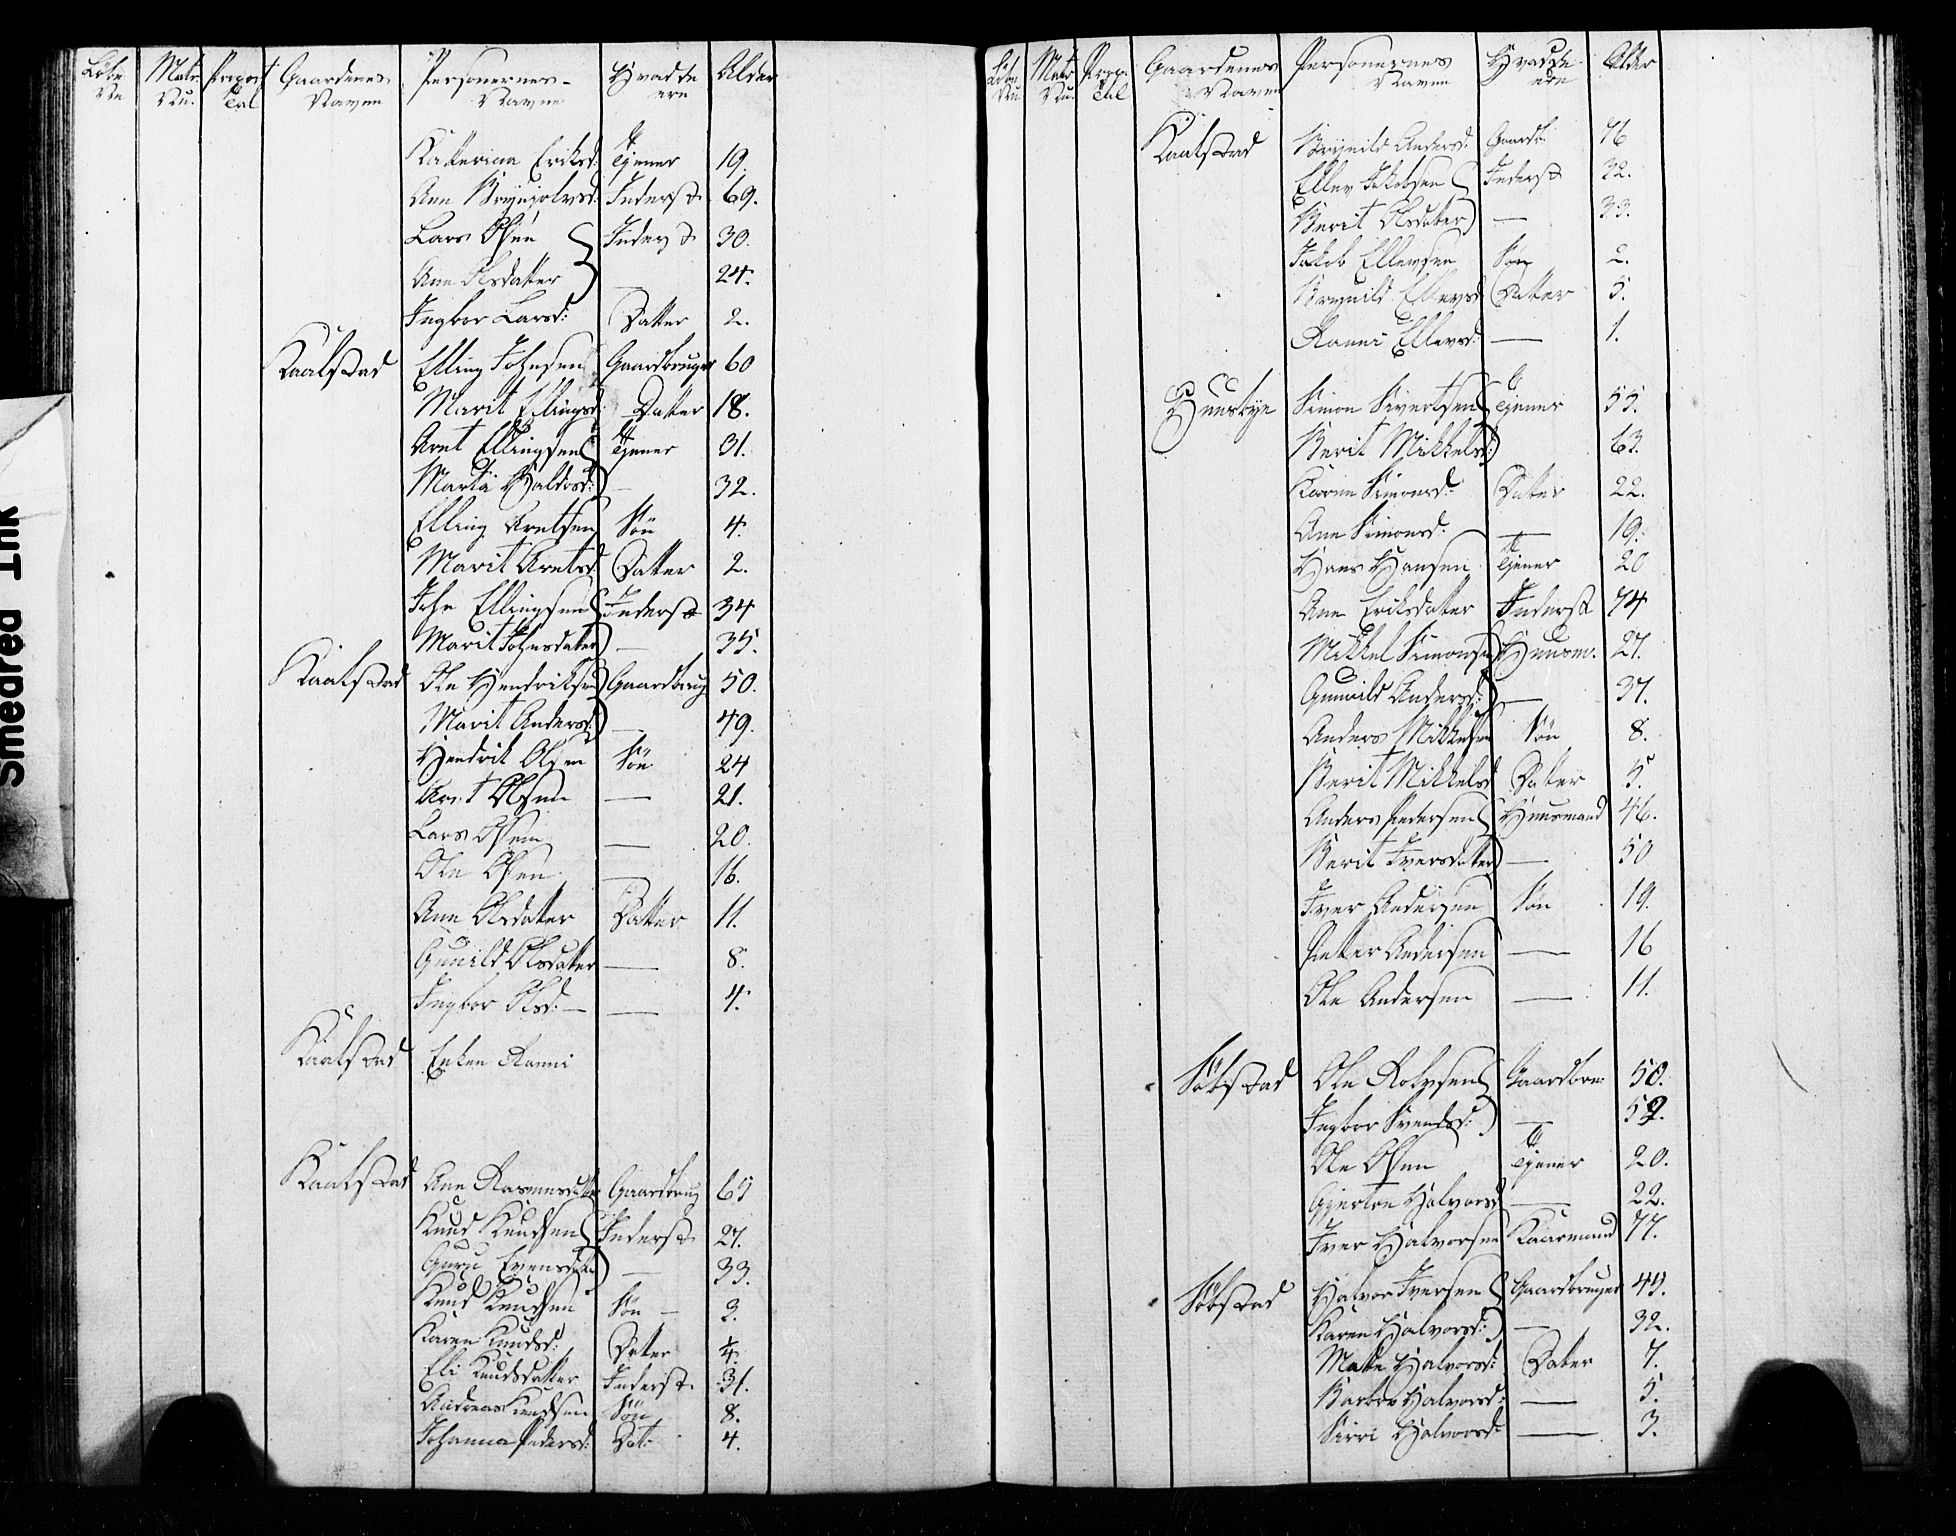 Smedred Ink
Løbe No Matr. Nu. Proport Tal Gaardenes Navne Personernes Navne Hvad de ere Alder
Katterina Eriksd: Tjener 19.
Ane Brynjolvsd. Inderst 69.
Lars Olsen Inderst 30.
Ane Olsdatter — 24.
Ingbor Larsd: Datter 2.
Kaalstad Elling Johnsen Gaardbruger 60
Marit Ellingsd. Datter 18.
Arnt Ellingsen Tjener 31.
Marta Haldosd: — 32.
Elling Arntsen Søn 4.
Marit Arntsd. Datter 2.
John Ellingsen Inderst 34
Marit Johnsdatter — 35.
Kaalstad Ole Hendriksen Gaardbrug 50.
Marit Andersd: — 49.
Hendrik Olsen Søn 24
Arnt Olsen — 21.
Lars Olsen — 20.
Ole Olsen — 16.
Ane Olsdatter Datter 11.
Gunild Olsdatter — 8.
Ingbor Olsd: — 4.
Kaalstad Enken Ranni
Kaalstad Ane Rasmusdatter Gaardbrug 65
Knud Knudsen Inderst 27.
Guru Evensdatter — 33.
Knud Knudsen Søn — 3.
Karen Knudsd: Datter 1/4.
Eli Knudsdatter Inderst 31.
Andreas Knudsen Søn 8.
Johanna Pedersd: Dat: 4.
Løbe Nu. Matr Nu. Prop: Tal Gaardenes Navne Personernes Navne Hvad de ere Alder
Kaalstad Brynild Andersd: Gaardb: 76
Ellev Jakobsen Inderst 32.
Berit Olsdatter — 33.
Jakob Ellevsen Søn 2.
Brynild Ellevsd Datter 5.
Ranni Ellevsd: — 1.
Huusbye Simon Sivertsen Tjener 55.
Berit Mikkelsd: 63.
Karen Simonsd: Datter 22.
Ane Simonsd: — 19.
Hans Hansen Tjener 20
Ane Eriksdatter Inderst 74
Mikkel Simonsen Huusm. 27.
Gunnild Andersd: — 37.
Anders Mikkelsen Søn 8.
Berit Mikkelsd Datter 5.
Anders Pedersen Huusmand 46.
Berit Iversdatter — 50
Iver Andersen Søn 19.
Petter Andersen — 16
Ole Andersen — 11.
Søbstad Ole Rolvsen Gaardbru: 50.
Ingbor Svendsd: — 52.
Ole Olsen Tjener 20.
Gjerton Halvorsd — 22.
Iver Halvorsen Kaarmand 77.
Søbstad Halvor Iversen Gaardbruger 45.
Karen Halvorsd: — 32.
Mette Halvorsd: Datter 7.
Barbro Halvorsd: — 5.
Sirri Halvorsd: — 3.